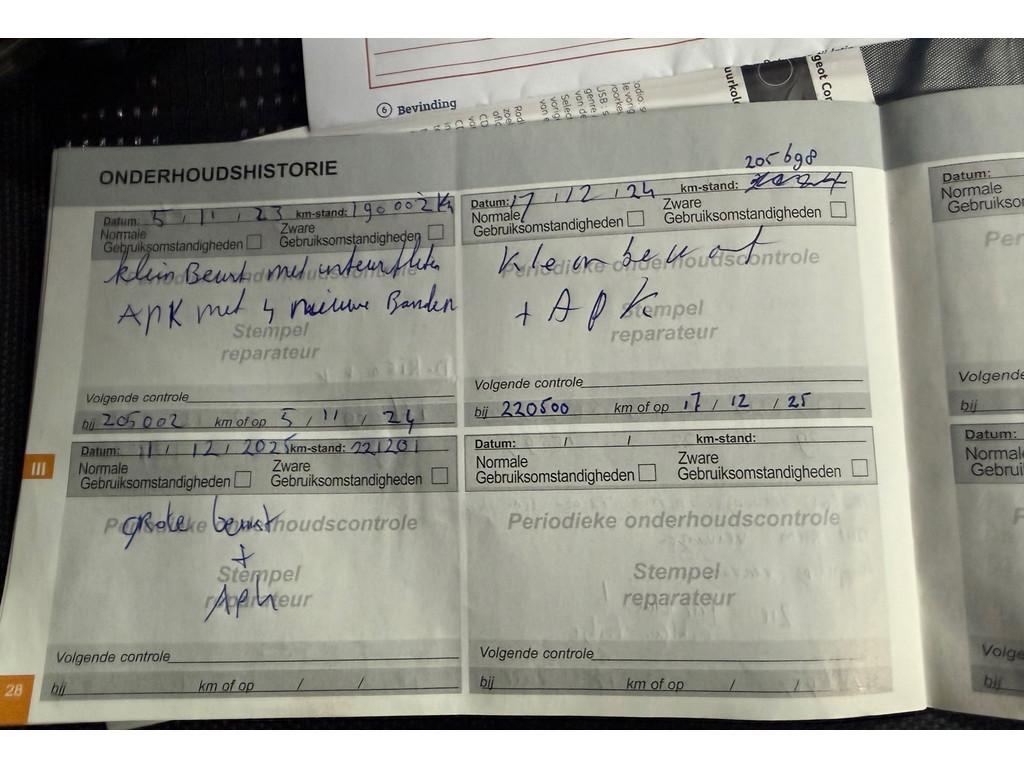 6 Bevinding
ONDERHOUDSHISTORIE
Datum: 5 / 11 / 23 km-stand: 190 002 km
Normale
Gebruiksomstandigheden
Zware
Gebruiksomstandigheden
klein Beurt met
APK met 4 nieuwe Banden
Periodieke onderhoudscontrole
Stempel
reparateur
Volgende controle
bij 205002 km of op 5 / 11 / 24
205 698
Datum: 17 / 12 / 24 km-stand:
Normale
Gebruiksomstandigheden
Zware
Gebruiksomstandigheden
Kleine beurt
+ APK
Periodieke onderhoudscontrole
Stempel
reparateur
Volgende controle
bij 220500 km of op 17 / 12 / 25
III
Datum: 11 / 12 / 2025 km-stand: 221201
Normale
Gebruiksomstandigheden
Zware
Gebruiksomstandigheden
grote beurt
+
Apk
Periodieke onderhoudscontrole
Stempel
reparateur
Volgende controle
bij km of op / /
Datum: / / km-stand:
Normale
Gebruiksomstandigheden
Zware
Gebruiksomstandigheden
Periodieke onderhoudscontrole
Stempel
reparateur
Volgende controle
bij km of op / /
28
Datum:
Normale
Volgende
bij
Datum:
bij